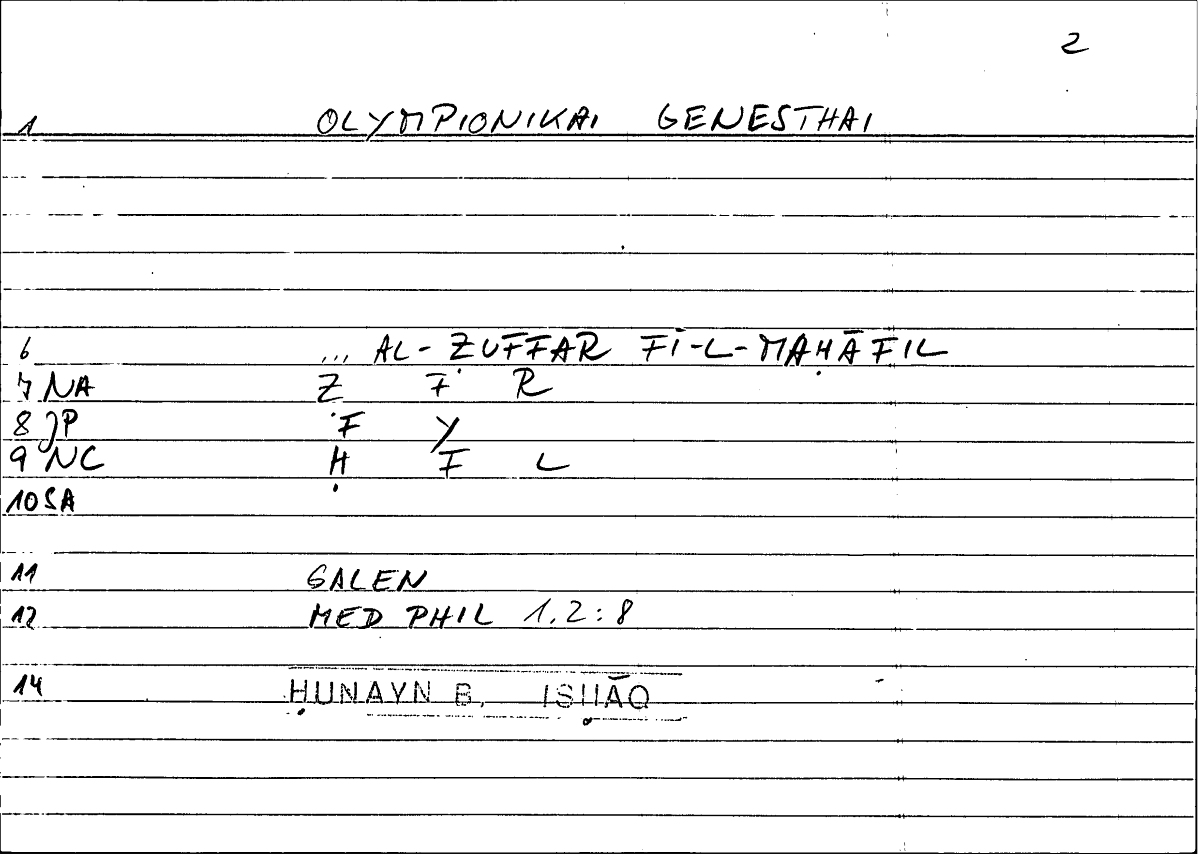 2
1 OLYMPIONIKAI GENESTHAI
6 ... AL-ẒUFFAR FĪ-L-MAḤĀFIL
7 NA Ẓ F R
8 JP F Y
9 NC Ḥ F L
10 SA
11 GALEN
12 MED PHIL 1.2:8
14 ḤUNAYN B. ISḤĀQ